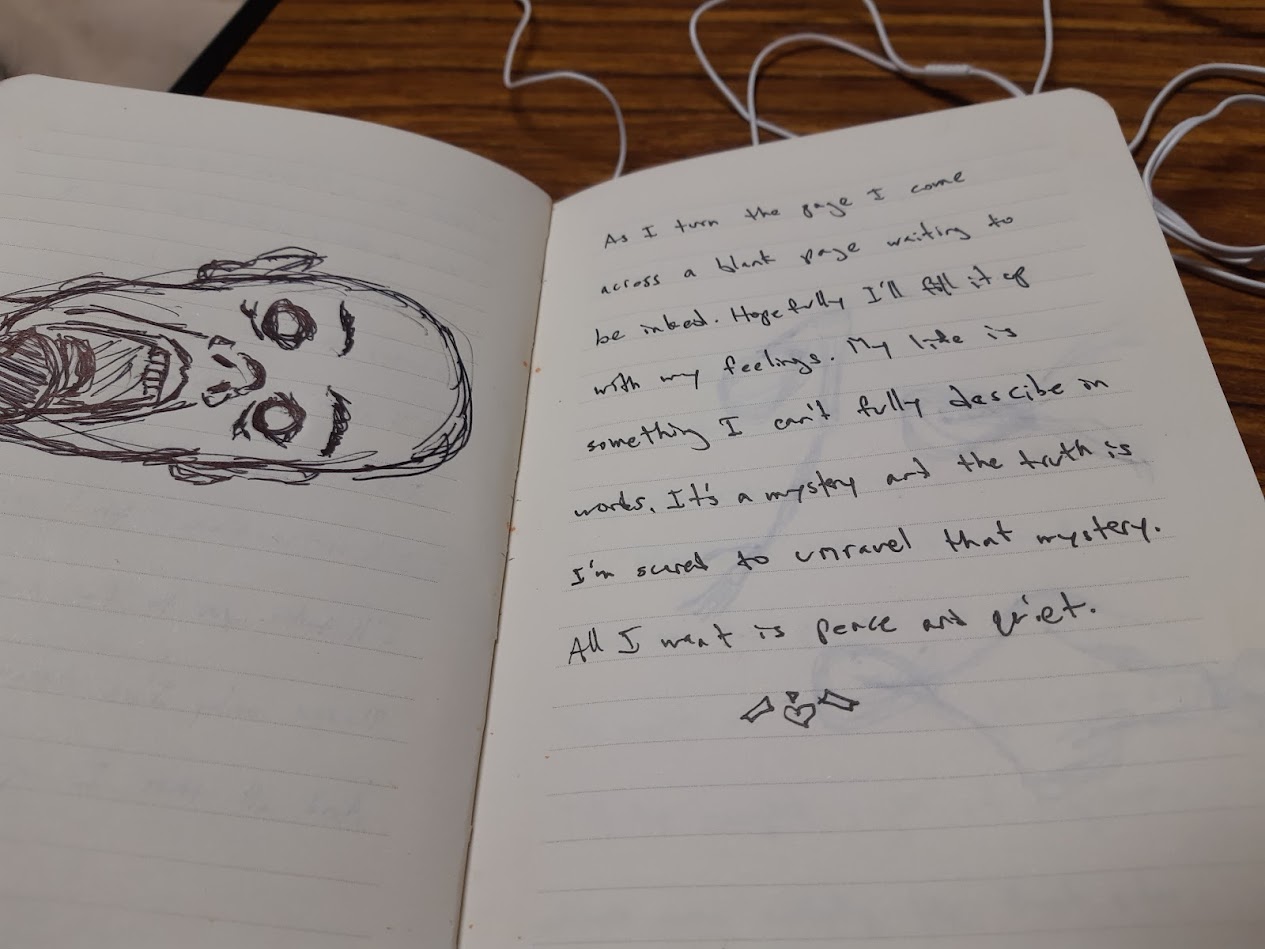 As I turn the page I come
across a blank page waiting to
be inked. Hopefully I'll fill it up
with my feelings. My life is
something I can't fully descibe in
words. It's a mystery and the truth is
I'm scared to unravel that mystery.
All I want is peace and quiet.